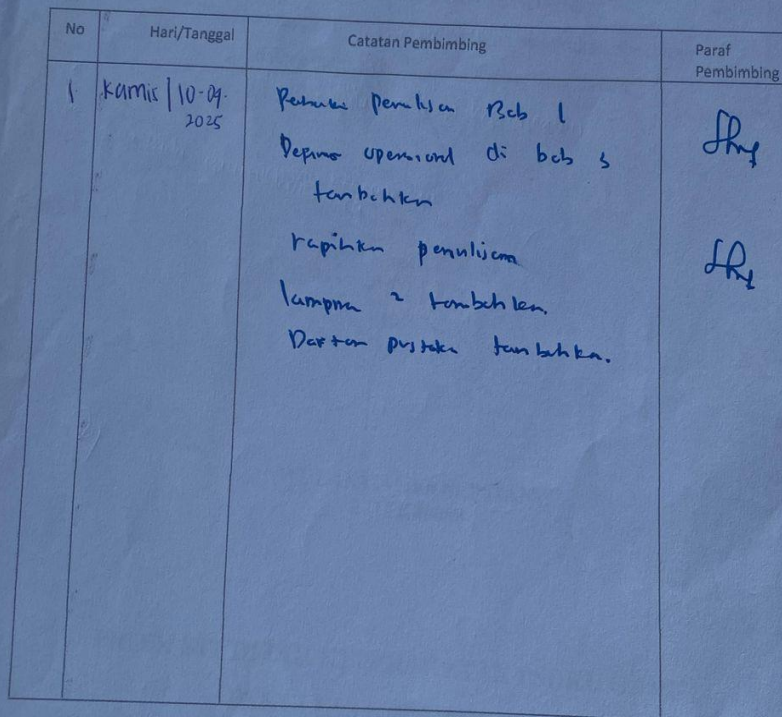 No Hari/Tanggal Catatan Pembimbing Paraf Pembimbing
1 Kamis / 10-04-2025
penulisan Bab 1
operasional di bab 3
tambahkan
rapihkan penulisan
lampiran 2 tambahkan.
Daftar pustaka tambahkan.